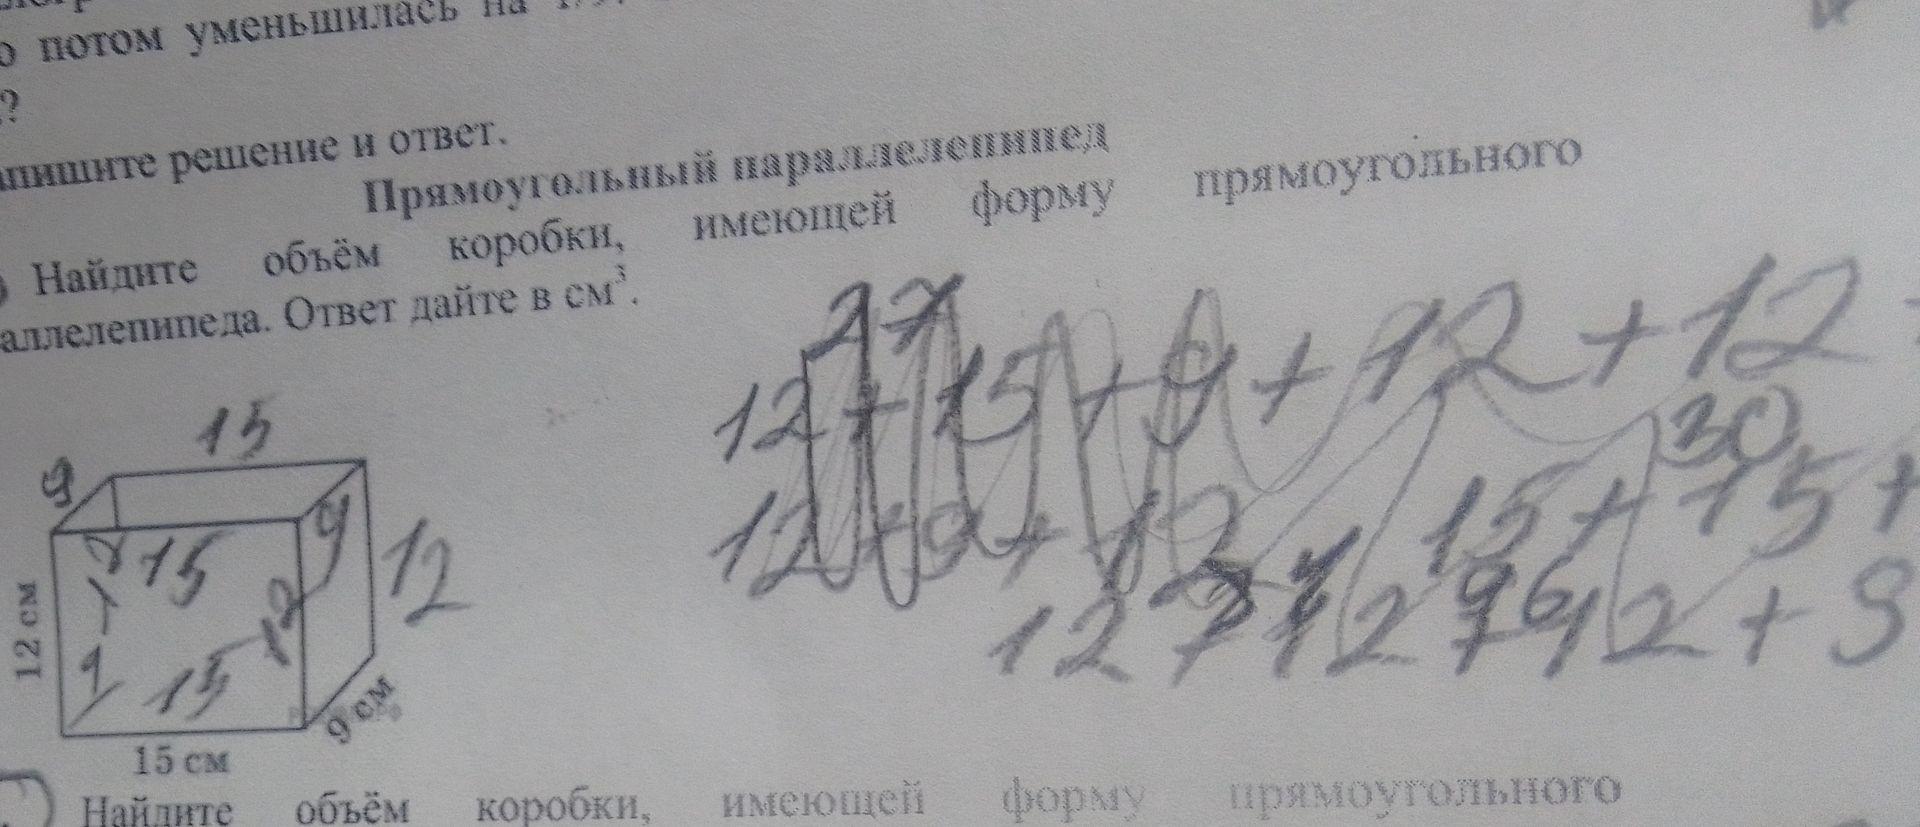 потом уменьшилась на
?
решение и ответ.
Прямоугольный параллелепипед
Найдите объём коробки, имеющей форму прямоугольного
аллелепипеда. Ответ дайте в см³.
27
12 + 15 + 9 + 12 + 12
30
15
9
15
9
12
12 + 9 + 12
15 + 15 +
96
12 + 12 + 12 + 9
12 см
15
12
9 см
15 см
Найдите объём коробки, имеющей форму прямоугольного